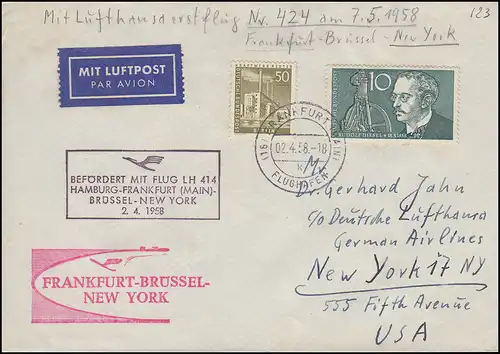 Mit Lufthansaerstflug Nr. 424 am 7.5.1958
Frankfurt-Brüssel-New York
123
MIT LUFTPOST
PAR AVION
50
10
RUDOLF DIESEL
(16) FRANKFURT (MAIN)
02.4.58.-18
FLUGHAFEN
BEFÖRDERT MIT FLUG LH 414
HAMBURG-FRANKFURT (MAIN)-
BRÜSSEL-NEW YORK
2. 4. 1958
Dr. Gerhard Jahn
c/o Deutsche Lufthansa
German Airlines
New York 17 NY
555 Fifth Avenue
USA
FRANKFURT-BRÜSSEL-
NEW YORK